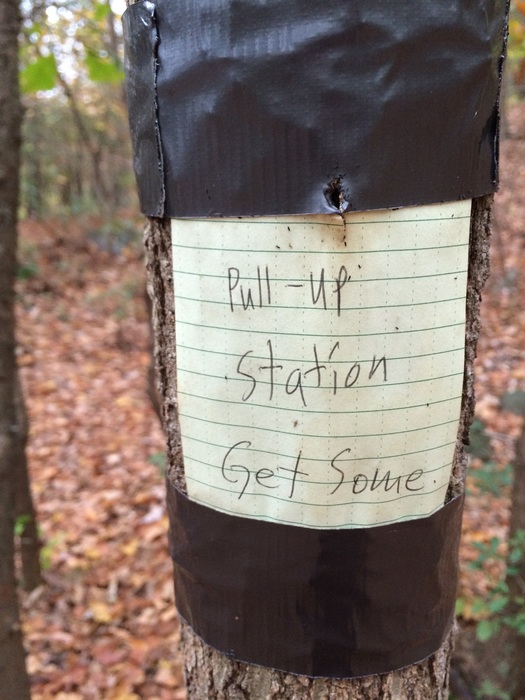 Pull-up
Station
Get Some.